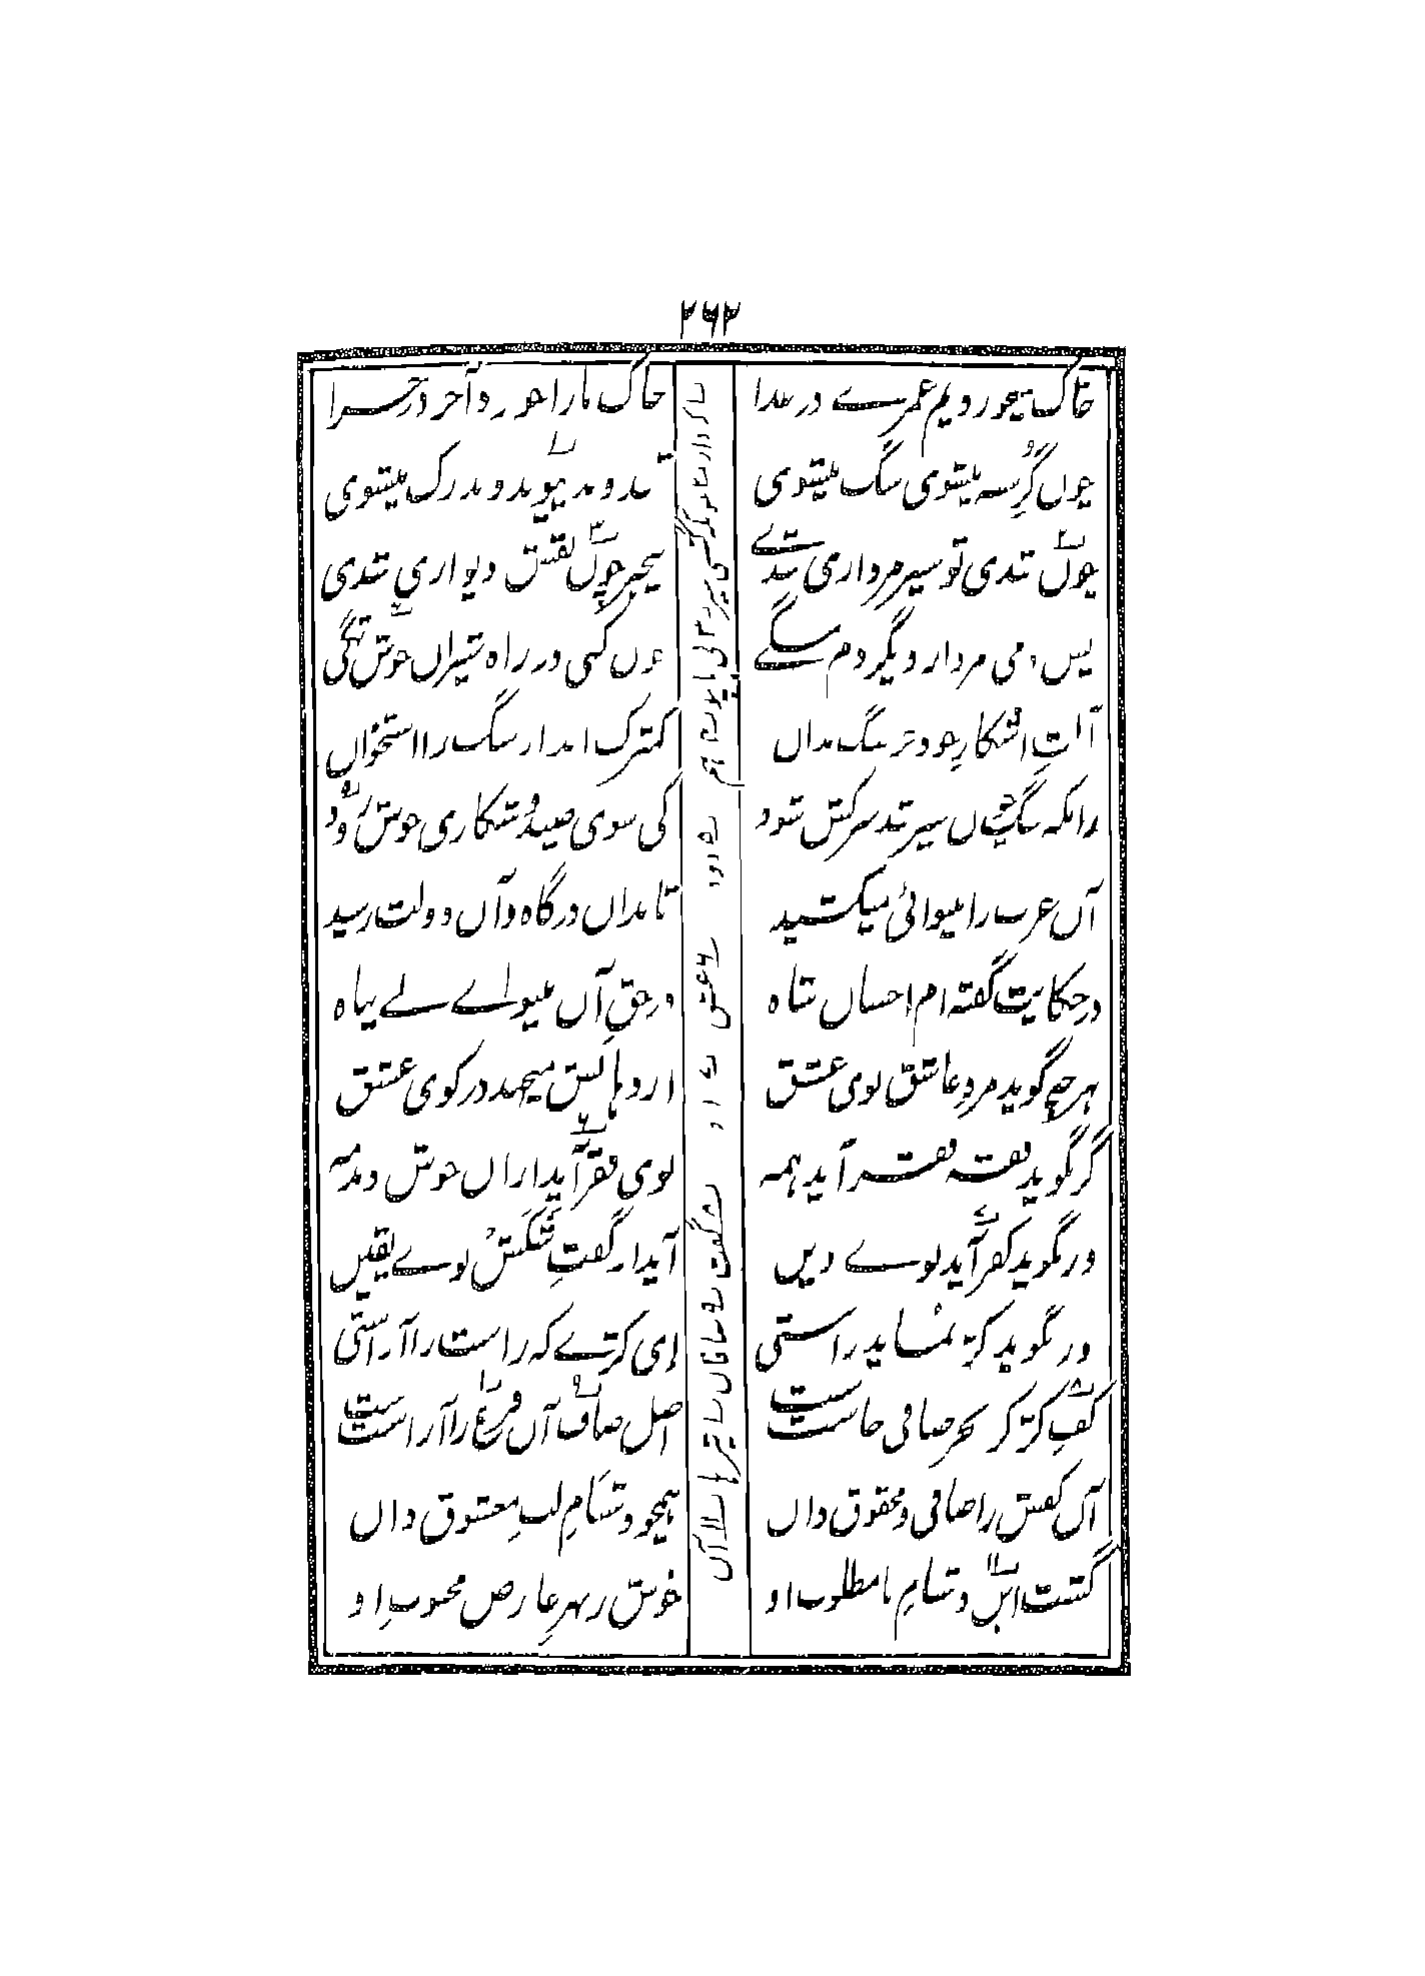 ۲۶۲
خاک میخوردیم عمرے در غذا
خاک ما را خورد آخر در جزا
چوں گرسنہ میشوی سگ میشوی
تند و بد پیوند و بدرگ میشوی
چوں شدی تو سیر مرداری شدے
بیخبر چوں نقش دیواری شدی
پس دمی مردار و دیگر دم سگے
چوں کنی در راہ شیراں خوش تگی
آلتِ اشکارِ خود جز سگ مداں
کمترک انداز سگ را استخواں
زانکہ سگ چوں سیر شد سرکش شود
کی سوی صید و شکاری خوش رود
آں عرب را بینوائی میکشید
تا بداں درگاہ و آں دولت رسید
در حکایت گفتہ ام احسان شاہ
در حقِ آں بینواے بے پناہ
ہر چہ گوید مردِ عاشق بوی عشق
از دہانش میجہد در کوی عشق
گر بگوید فقہ فقر آید ہمہ
بوی فقر آید ازاں خوش دمدمہ
ور بگوید کفر آید بوے دیں
آید از گفتِ شکش بوے یقیں
ور بگوید کژ نماید راستی
ای کژے کہ راست را آراستی
کفِ کژ کز بحر صافی خاست ست
اصل صاف آں فرع را آراست ست
آں کفش را صافی و محقوق داں
ہمچو دشنامِ لبِ معشوق داں
گشت ایں دشنامِ نامطلوب او
خوش ز بہرِ عارض محبوبِ او